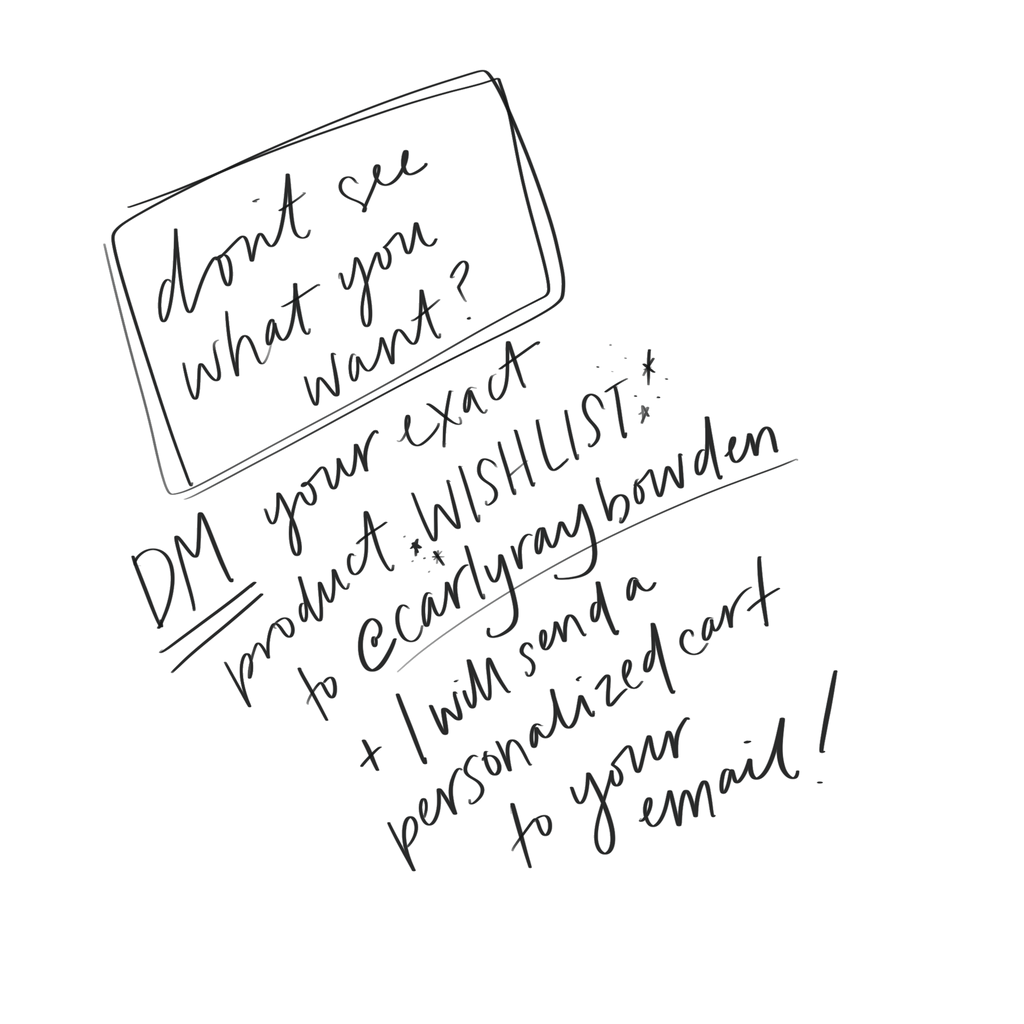 don't see
what you
want?
DM your exact
product WISHLIST
to @carlyraybowden
+ I will send a
personalized cart
to your
email!